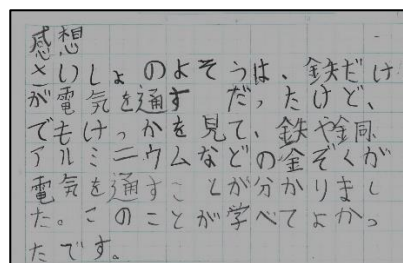 感想
さいしょのよそうは、鉄だけ
が電気を通す だったけど、
でもけっかを見て、鉄や銅
アルミニウムなどの金ぞくが
電気を通すことが分かりまし
た。このことが学べてよかっ
たです。